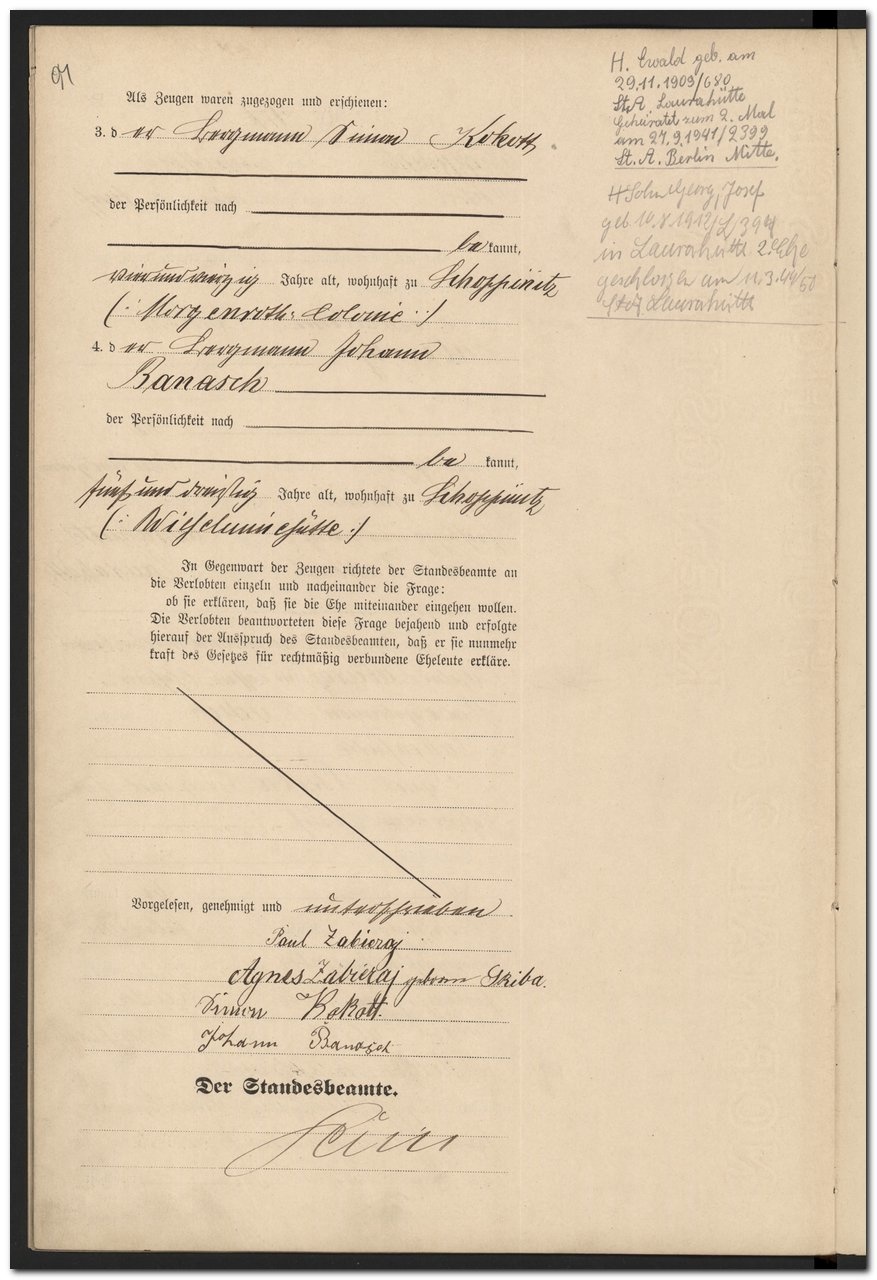 91
Als Zeugen waren zugezogen und erschienen:
3. der Bergmann Simon Kokott
der Persönlichkeit nach
bekannt,
vierundvierzig Jahre alt, wohnhaft zu Schoppinitz
(: Morgenroth-Colonie :)
4. der Bergmann Johann
Banasch
der Persönlichkeit nach
bekannt,
fünfunddreißig Jahre alt, wohnhaft zu Schoppinitz
(: Wilhelminehütte :)
In Gegenwart der Zeugen richtete der Standesbeamte an
die Verlobten einzeln und nacheinander die Frage:
ob sie erklären, daß sie die Ehe miteinander eingehen wollen.
Die Verlobten beantworteten diese Frage bejahend und erfolgte
hierauf der Ausspruch des Standesbeamten, daß er sie nunmehr
kraft des Gesetzes für rechtmäßig verbundene Eheleute erkläre.
Vorgelesen, genehmigt und unterschrieben
Paul Zabieraj
Agnes Zabieraj geborene Skiba.
Simon Kokott.
Johann Banasch
Der Standesbeamte.
H. Ewald geb. am
29.11.1909/680
St.A. Laurahütte
Geheiratet zum 2. Mal
am 27.9.1941/2399
St. A. Berlin Mitte.
H Sohn Georg, Josef
geb 10.V.1912/
in Laurahütte 2. Ehe
geschlossen am 11.3.44/50
StA Laurahütte